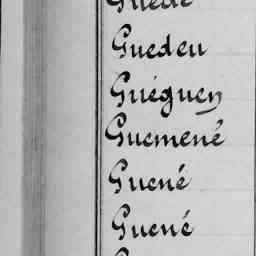 Guede
Guedeu
Guéguen
Guemené
Guené
Guené